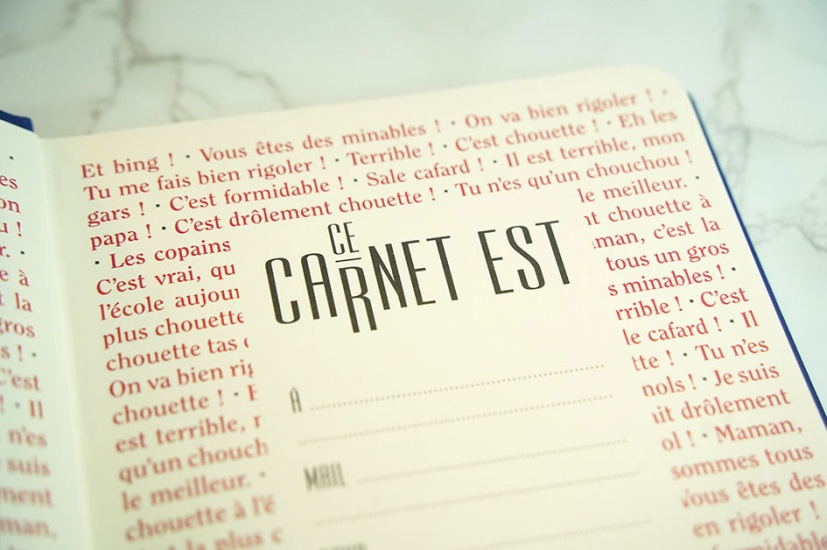 Et bing ! · Vous êtes des minables ! · On va bien rigoler ! ·
Tu me fais bien rigoler ! · Terrible ! · C'est chouette ! · Eh les
gars ! · C'est formidable ! · Sale cafard ! · Il est terrible, mon
papa ! · C'est drôlement chouette ! · Tu n'es qu'un chouchou !
· Les copains
le meilleur. ·
C'est vrai, qu
nt chouette à
l'école aujour
man, c'est la
plus chouette
tous un gros
chouette tas
s minables ! ·
On va bien rig
rrible ! · C'est
chouette ! ·
le cafard ! · Il
est terrible,
tte ! · Tu n'es
qu'un chouch
nols ! · Je suis
le meilleur. ·
it drôlement
chouette à l'é
ol ! · Maman,
la plus c
sommes tous
Vous êtes des
en rigoler !
formidable
CE
CARNET EST
À
MAIL
es
on
u !
r. ·
e à
t la
gros
s ! ·
C'est
! · Il
n'es
suis
ment
man,